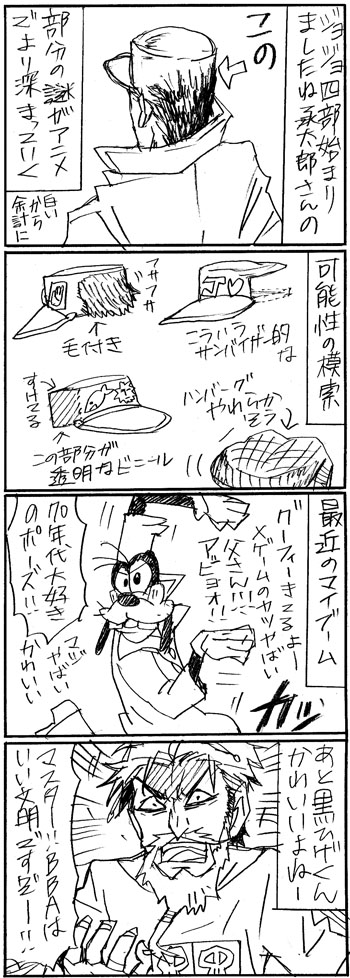 ジョジョ四部始まり
ましたね承太郎さんの
この
部分の謎がアニメ
でより深まっていく
白い
から
余計に
可能性の模索
フサフサ
毛付き
こういう
サンバイザー的
な
すけてる
この部分が
透明なビニール
ハンバーグ
やわらか
そう
最近のマイブーム
グーフィーきてるよー
×ゲームのヤツやばい
父さん!!!
アッビョオ!!
70年代大好き
のポーズ!!
マジ
やばい
かわいい
ガッ
あと黒ひげくん
かわいいよねー
マスター!!BBAは
いい文明ですぞー!!